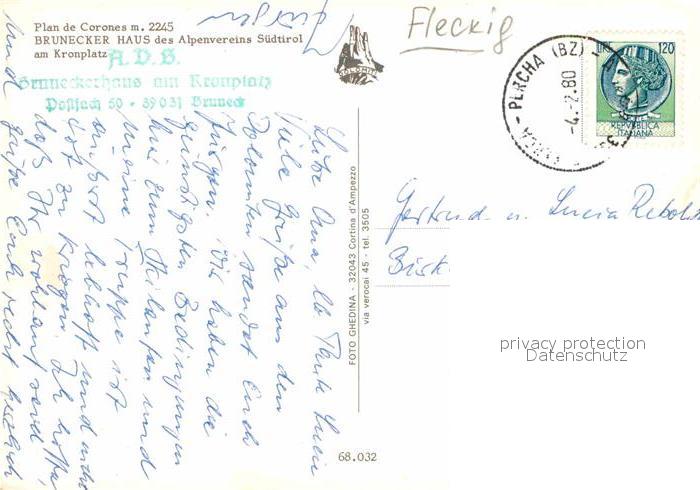 Plan de Corones m. 2245
BRUNECKER HAUS des Alpenvereins Südtirol
am Kronplatz
A.V.S.
Bruneckerhaus am Kronplatz
Postfach 50 - 39031 Bruneck
DOLOMITI
Fleckig
PERCHA (BZ)
-4.-2.80
LIRE 120
REPVBBLICA
ITALIANA
Liebe Oma, lb Tante Lucia
Viele Grüße aus den
Dolomiten sendet Euch
Jürgen. Wir haben die
günstigsten Bedingungen
hier zum Skilaufen und
meine Truppe ist
äußerst lebhaft und nicht
tot zu kriegen. Ich hoffe,
daß Ihr wohlauf seid
und grüße Euch recht herzlich
Jürgen
Gertrud u. Lucia
FOTO GHEDINA - 32043 Cortina d'Ampezzo
via verocai 45 - tel. 3505
68.032
privacy protection
Datenschutz